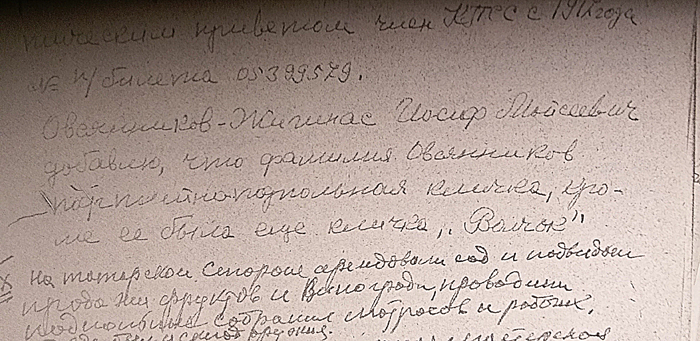 тическим приветом член КПСС с 1912 года
№ п/билета 05399579.
Овсянников-Жигинас Иосиф Моисеевич
добавлю, что фамилия Овсянников
партийноподпольная кличка, кро-
ме ее была еще кличка, „Волчок"
На татарской стороне арендовали сад и под видом
продажи фруктов и винограда, проводили
собрания матросов и рабочих,